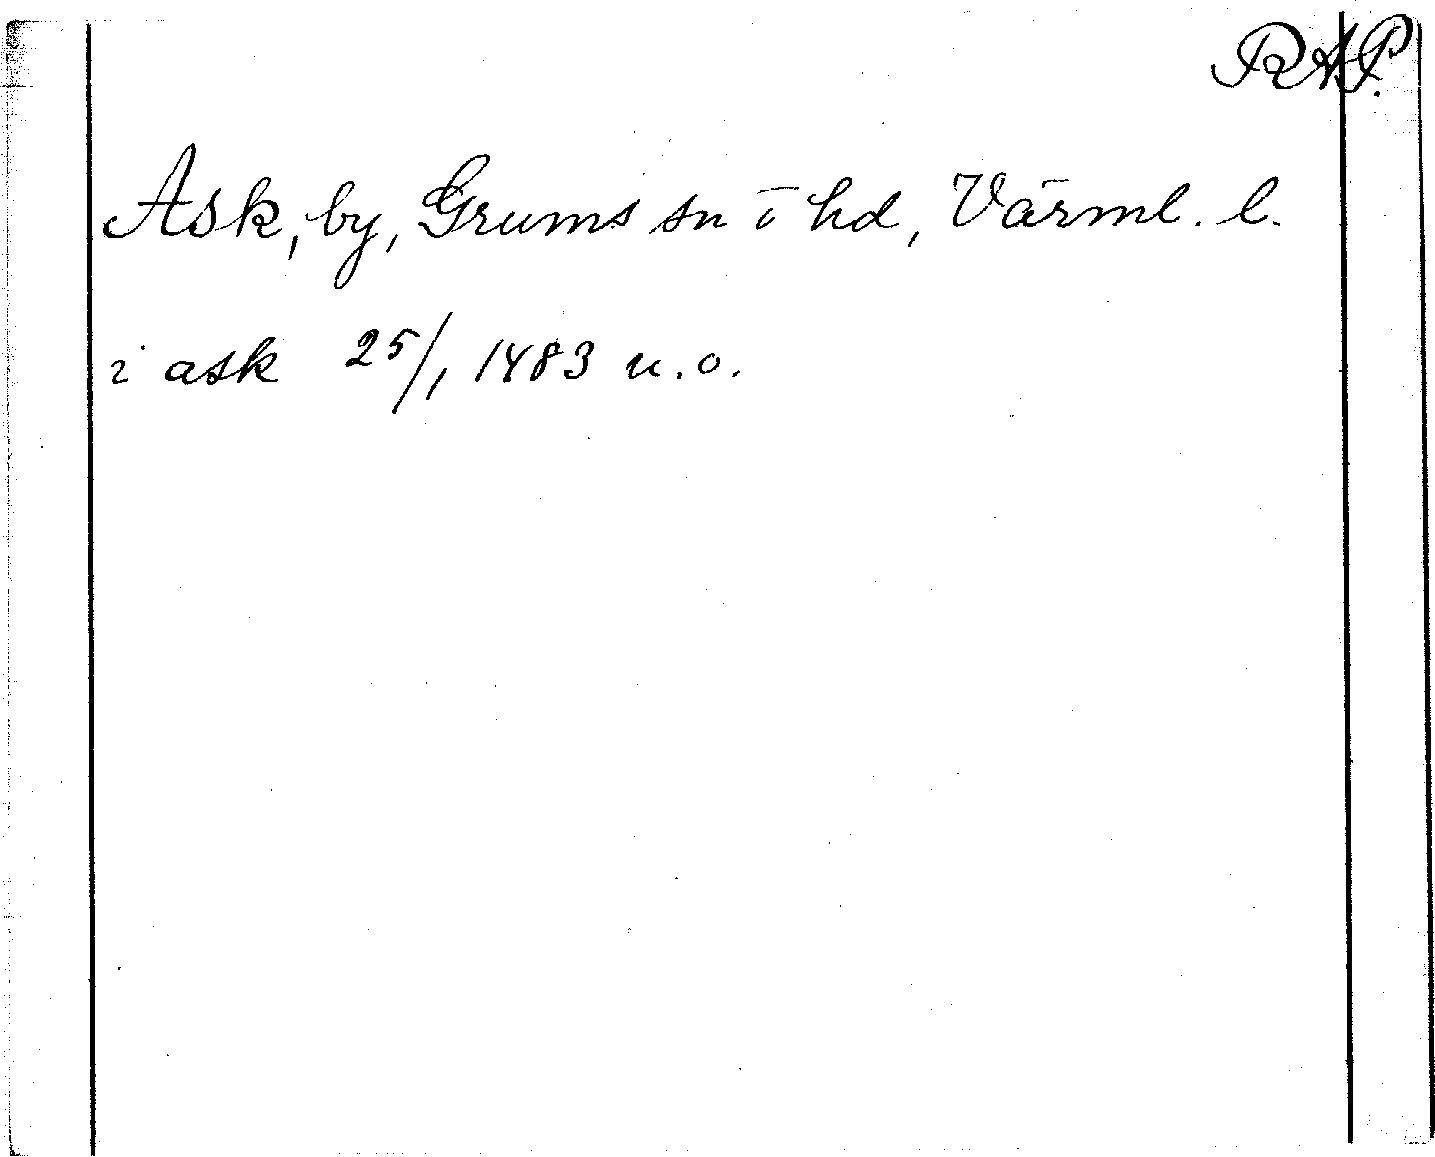 RAP.
Ask, by, Grums sn ō hd, Värml. l.
i ask 25/1 1483 u.o.